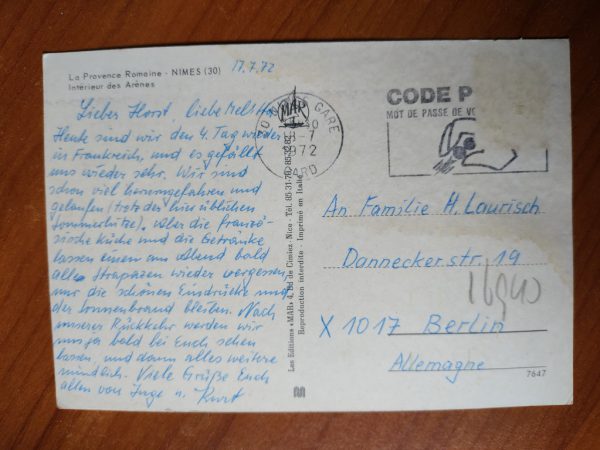 La Provence Romaine - NIMES (30)
Intérieur des Arènes
17.7.72
Lieber Horst, liebe
Heute sind wir den 4. Tag wieder
in Frankreich, und es gefällt
uns wieder sehr. Wir sind
schon viel herumgefahren und
gelaufen (trotz der hier üblichen
Sommerhitze). Aber die franzö-
sische Küche und die Getränke
lassen einen am Abend bald
alle Strapazen wieder vergessen,
nur die schönen Eindrücke und
der Sonnenbrand bleiben. Nach
unserer Rückkehr werden wir
uns ja bald bei Euch sehen
lassen, und dann alles weitere
mündlich. Viele Grüße Euch
allen von Inge u. Kurt
Les Editions «MAR» 4, Bd de Cimiez - Nice - Tél. 85-31-70
Reproduction interdite - Imprimé en Italie
MAR
30 GARE
1972
GARD
CODE P
MOT DE PASSE DE VO
An Familie H. Laurisch
Dannecker str. 19
X 1017 Berlin
Allemagne
7647